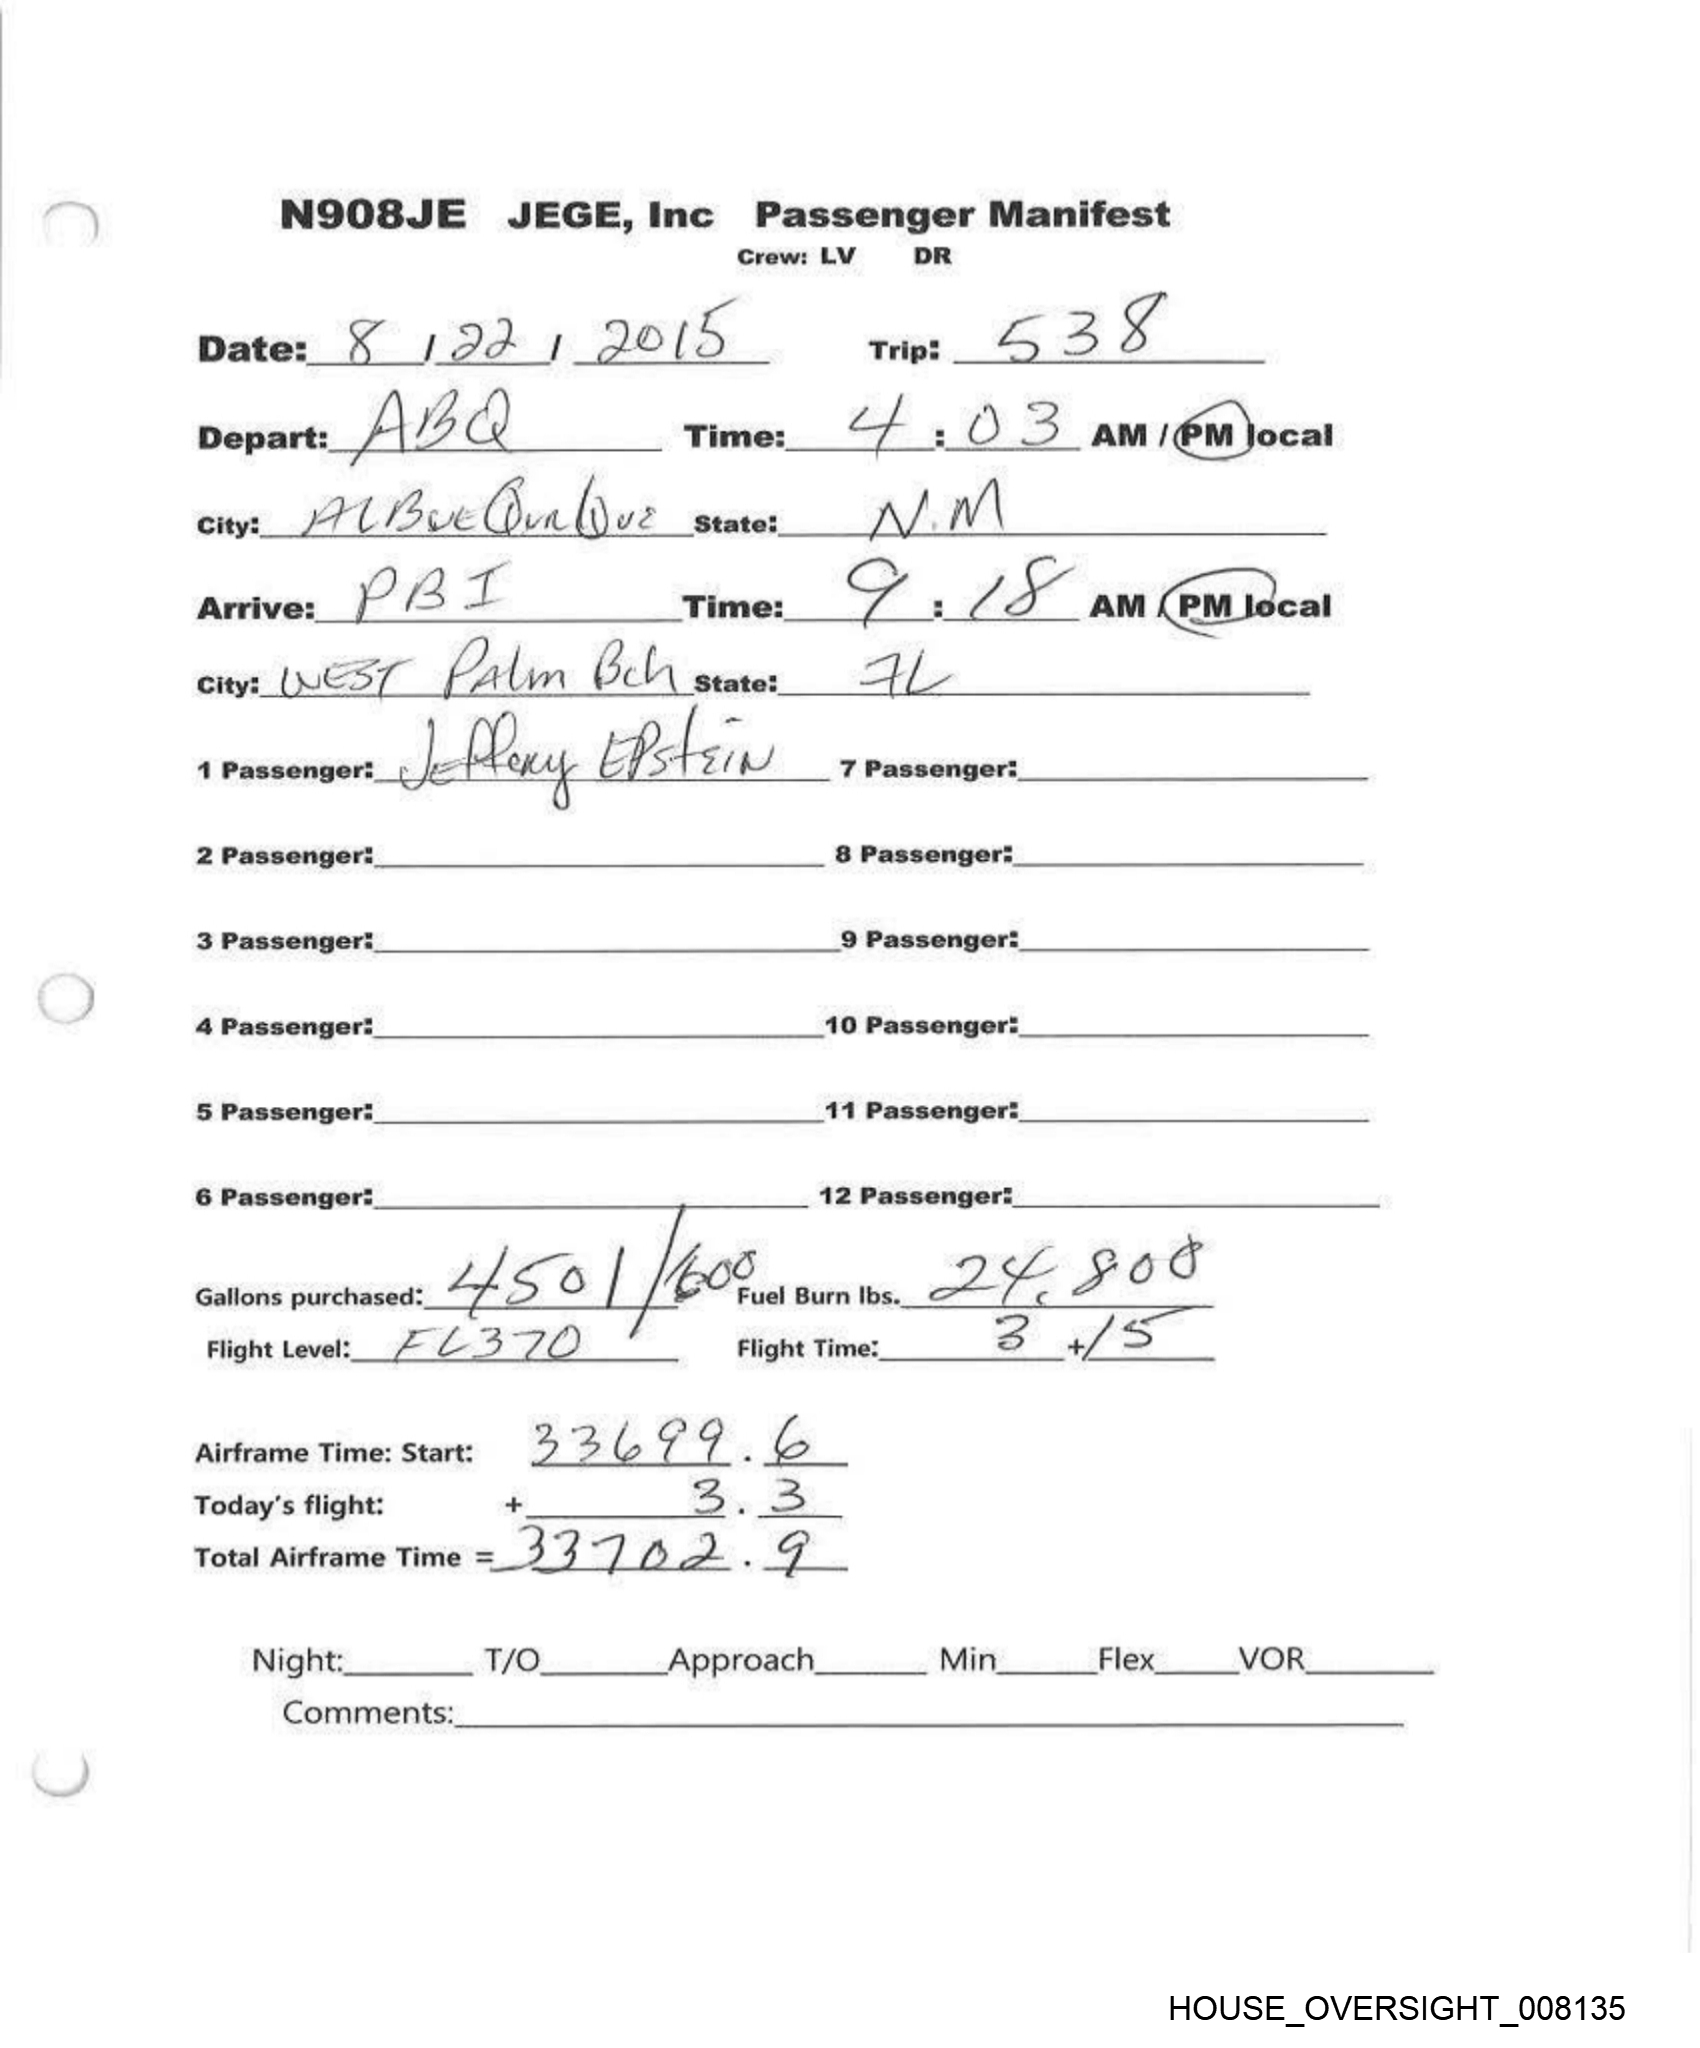 N908JE JEGE, Inc Passenger Manifest
Crew: LV DR
Date: 8 / 22 / 2015 Trip: 538
Depart: ABQ Time: 4 : 03 AM / PM local
City: ALBUEQURQUE State: N.M
Arrive: PBI Time: 9 : 18 AM / PM local
City: WEST Palm Bch State: FL
1 Passenger: Jeffery EPstein 7 Passenger:
2 Passenger: 8 Passenger:
3 Passenger: 9 Passenger:
4 Passenger: 10 Passenger:
5 Passenger: 11 Passenger:
6 Passenger: 12 Passenger:
Gallons purchased: 4501/600 Fuel Burn lbs. 24,800
Flight Level: FL370 Flight Time: 3 + 15
Airframe Time: Start: 33699 . 6
Today's flight: + 3 . 3
Total Airframe Time = 33702 . 9
Night: T/O Approach Min Flex VOR
Comments:
HOUSE_OVERSIGHT_008135